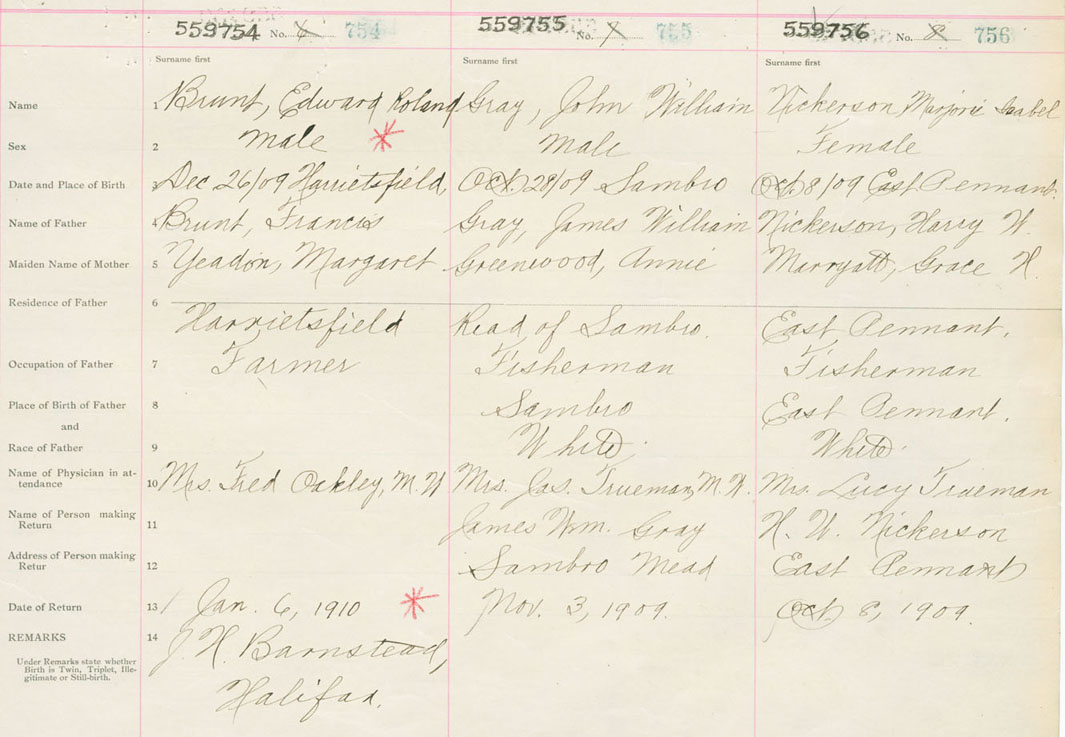 559754 No. 754 559755 No. 755 559756 No. 8 756
Surname first Surname first Surname first
Name 1 Brunt, Edward Roland Gray, John William Nickerson Marjorie Isabel
Sex 2 Male * Male Female
Date and Place of Birth 3 Dec 26/09 Harrietsfield, Oct. 28/09 Sambro Oct. 8/09 East Pennant.
Name of Father 4 Brunt, Francis Gray, James William Nickerson, Harry W.
Maiden Name of Mother 5 Yeadon, Margaret Greenwood, Annie Marryatt, Grace H.
Residence of Father 6 Harrietsfield Head of Sambro. East Pennant.
Occupation of Father 7 Farmer Fisherman Fisherman
Place of Birth of Father 8 Sambro East Pennant.
and
Race of Father 9 White. White.
Name of Physician in at-
tendance 10 Mrs. Fred Oakley, M.W Mrs. Jas. Trueman, M.W. Mrs. Lucy Trueman
Name of Person making
Return 11 James Wm. Gray H. W. Nickerson
Address of Person making
Retur 12 Sambro Head East Pennant
Date of Return 13 Jan. 6, 1910 * Nov. 3, 1909. Oct. 8, 1909.
REMARKS 14 J. H. Barnstead,
Under Remarks state whether
Birth is Twin, Triplet, Ille-
gitimate or Still-birth.
Halifax.